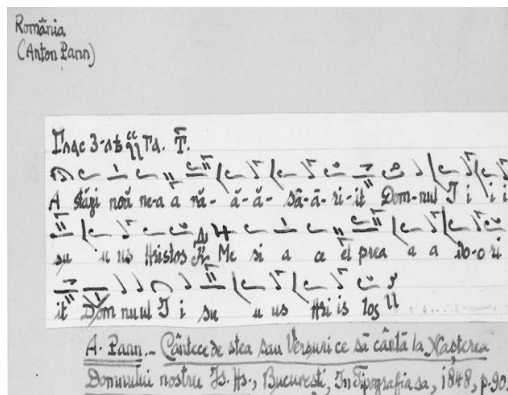 România
(Anton Pann)
Глас 3-лѣ Га.
A stăzi noă ne-a a nă- ă-ă- să-ă-ri-it Dom-nul I i i
su u us Hristos Me si a ce el prea a a do-o ri
it Domnuul I i su u us Hri is tos
A. Pann.- Cântece de stea sau Versuri ce să cântă la Nașterea
Domnului nostru Is. Hs., București, In Tipografia sa, 1848, p.90.